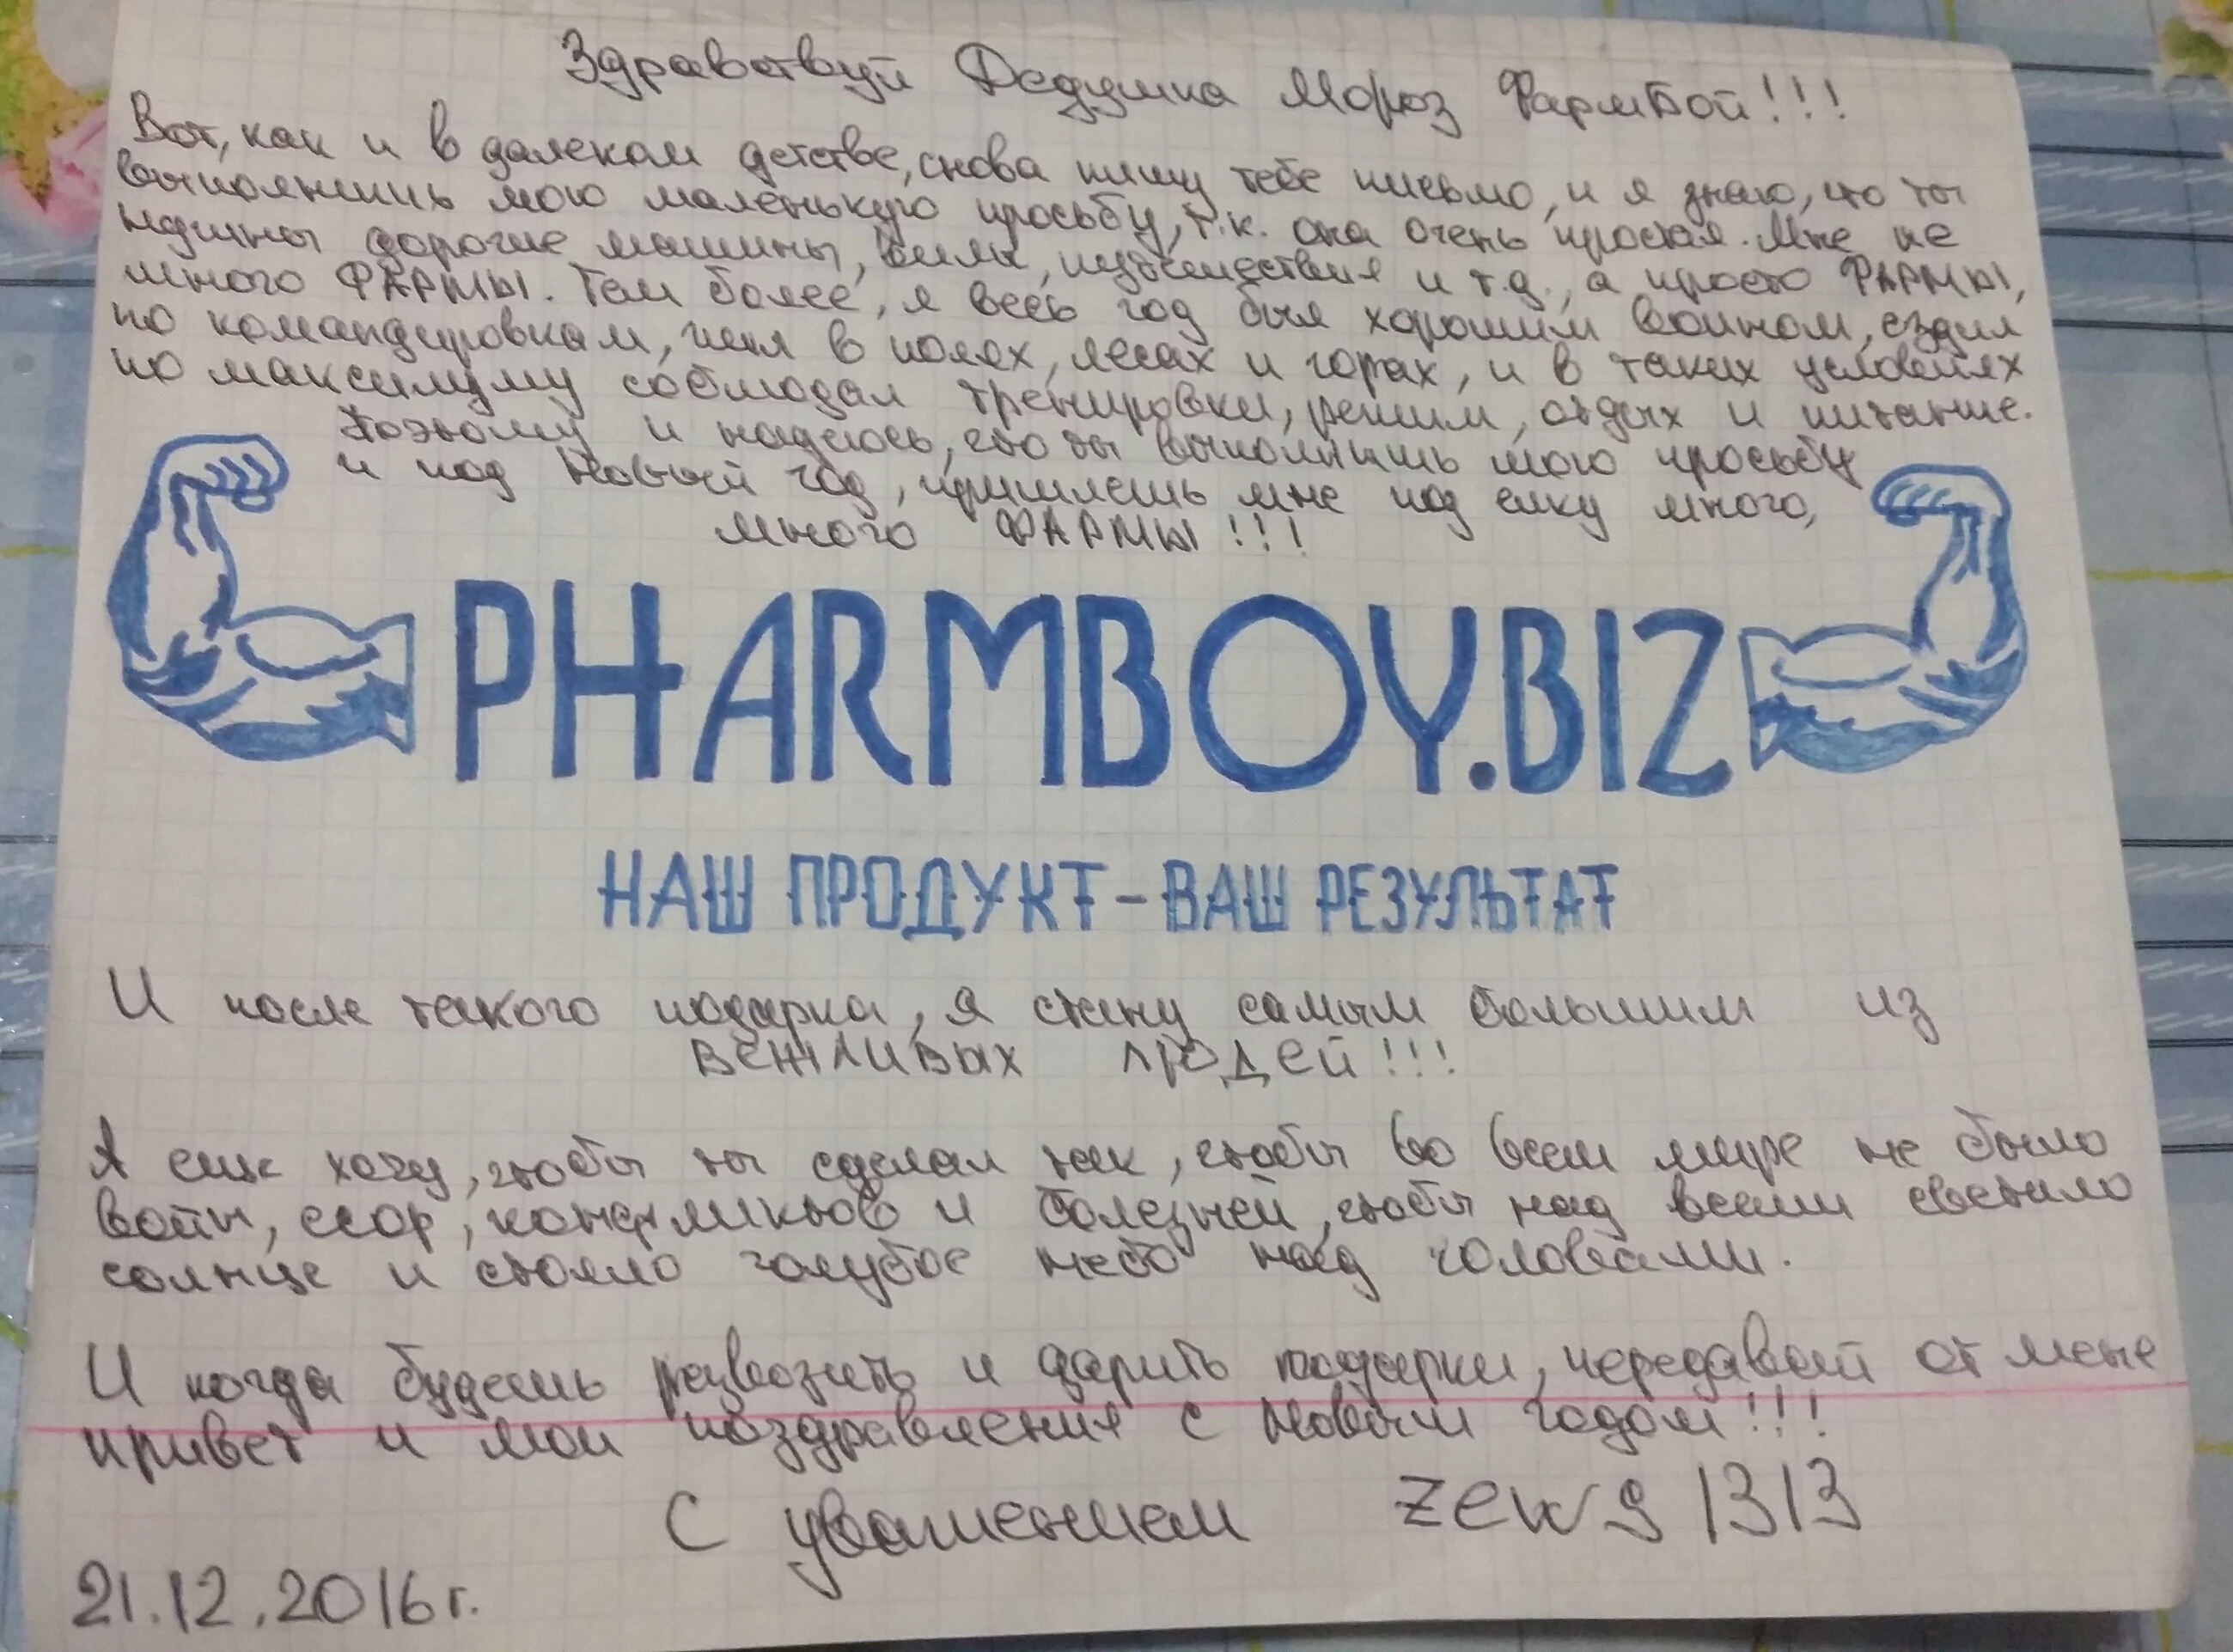 Здравствуй Дедушка Мороз ФармБой!!!
Вот, как и в далеком детстве, снова пишу тебе письмо, и я знаю, что ты
выполнишь мою маленькую просьбу, т.к. она очень простая. Мне не
нужны дорогие машины, виллы, путешествия и т.д., а просто ФАРМЫ,
много ФАРМЫ. Тем более, я весь год был хорошим воином, ездил
по командировкам, жил в полях, лесах и горах, и в таких условиях
по максимуму соблюдал тренировки, режим, отдых и питание.
Поэтому и надеюсь, что ты выполнишь мою просьбу
и под Новый год, пришлешь мне под елку много,
много ФАРМЫ!!!
PHARMBOY.BIZ
НАШ ПРОДУКТ-ВАШ РЕЗУЛЬТАТ
И после такого подарка, я стану самым большим из
ВЕЖЛИВЫХ ЛЮДЕЙ!!!
А еще хочу, чтобы ты сделал так, чтобы во всем мире не было
войн, ссор, конфликтов и болезней, чтобы над всеми светило
солнце и стояло голубое небо над головами.
И когда будешь развозить и дарить подарки, передавай от меня
привет и мои поздравления с Новым годом!!!
С уважением zews1313
21.12.2016г.